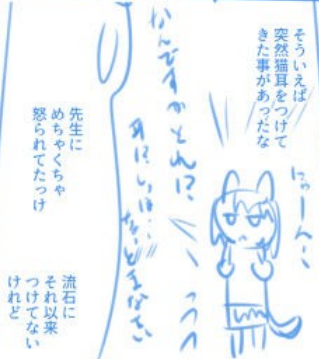 そういえば
突然猫耳をつけて
きた事があったな
にゃーん…
なんですかそれは?
先生に
めちゃくちゃ
怒られてたっけ
流石に
それ以来
つけてない
けれど